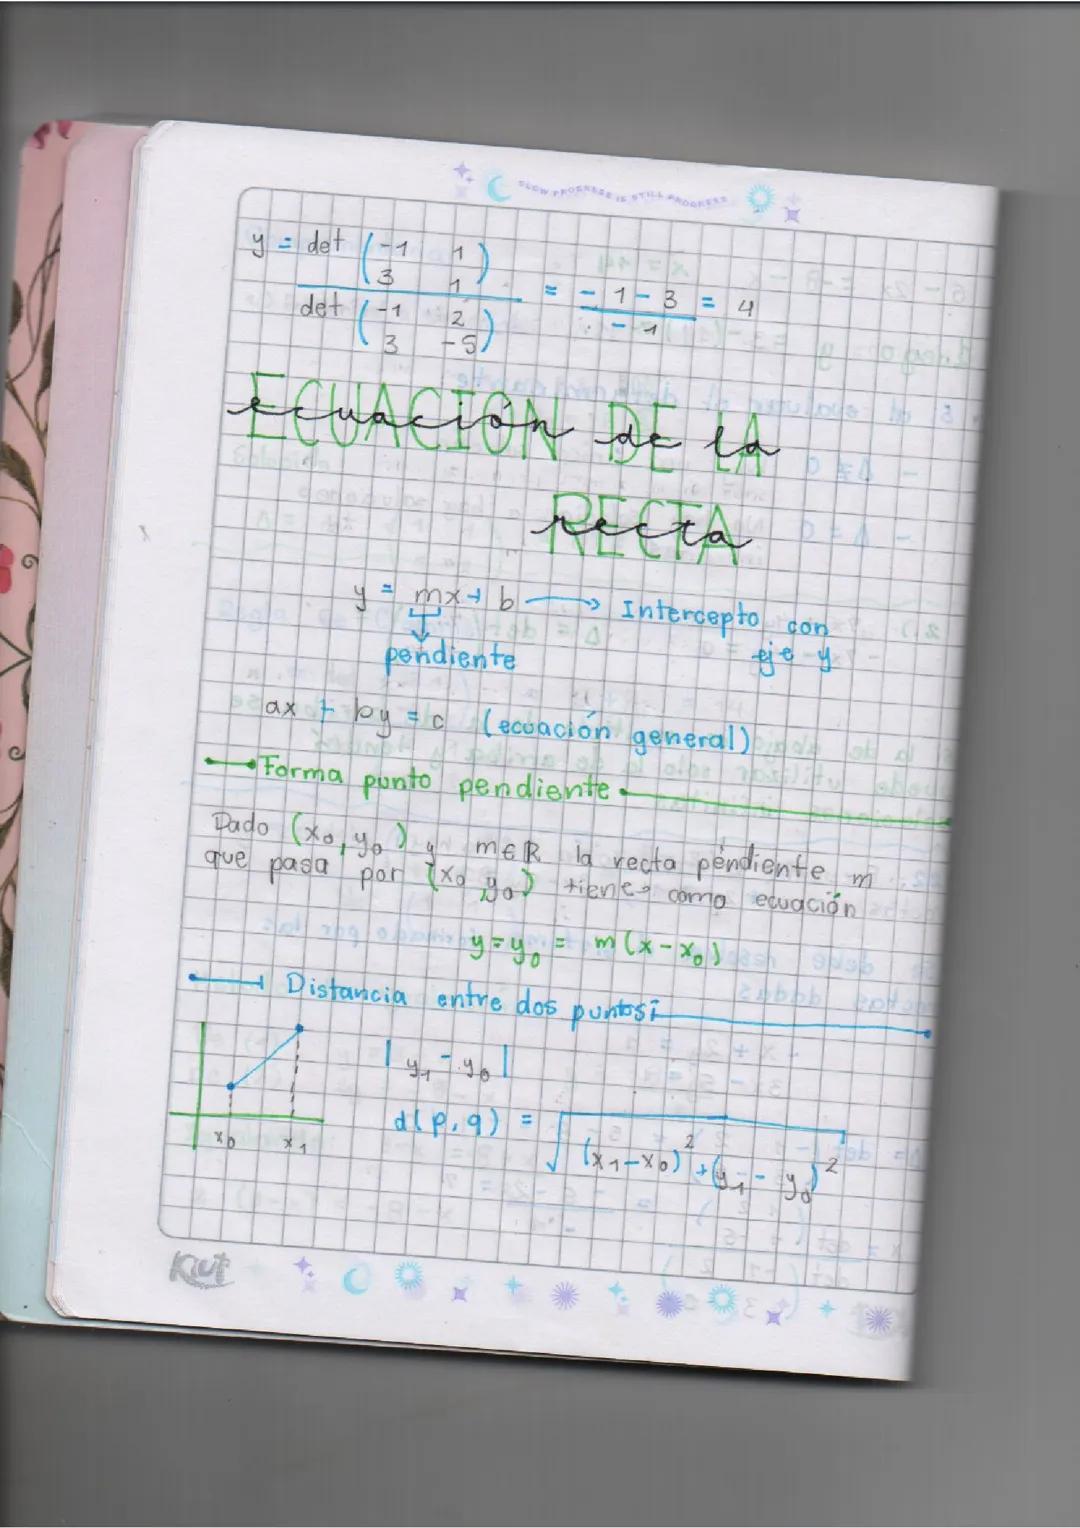 SLOW PROGRESS IS STILL PROGRESS
y = det (-1 1
3 1) = -1-3 = 4
det (-1 2 -1
3 -5)
ECUACIÓN DE LA
ecuación de la
RECTA
recta
y = mx + b → Intercepto con
pendiente eje y
ax + by = c (ecuación general)
Forma punto pendiente
Dado (x₀, y₀) y m∈ℝ la recta péndiente m
que pasa por (x₀, y₀) tiene como ecuación
y = y₀ = m(x - x₀)
Distancia entre dos puntos:
|y₁ - y₀|
d(p,q) = √(x₁-x₀)² + (y₁ - y₀)²
x₀ x₁
Kiut